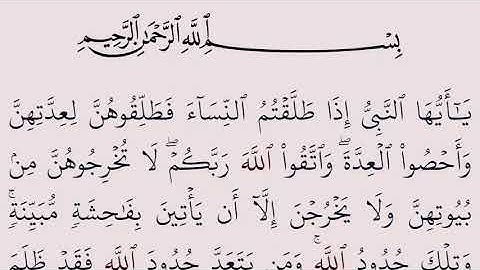 بِسْمِ ٱللَّهِ ٱلرَّحْمَٰنِ ٱلرَّحِيمِ
يَـٰٓأَيُّهَا ٱلنَّبِىُّ إِذَا طَلَّقْتُمُ ٱلنِّسَآءَ فَطَلِّقُوهُنَّ لِعِدَّتِهِنَّ
وَأَحْصُوا۟ ٱلْعِدَّةَ ۖ وَٱتَّقُوا۟ ٱللَّهَ رَبَّكُمْ ۖ لَا تُخْرِجُوهُنَّ مِنۢ
بُيُوتِهِنَّ وَلَا يَخْرُجْنَ إِلَّآ أَن يَأْتِينَ بِفَـٰحِشَةٍ مُّبَيِّنَةٍ ۚ
وَتِلْكَ حُدُودُ ٱللَّهِ ۚ وَمَن يَتَعَدَّ حُدُودَ ٱللَّهِ فَقَدْ ظَلَمَ